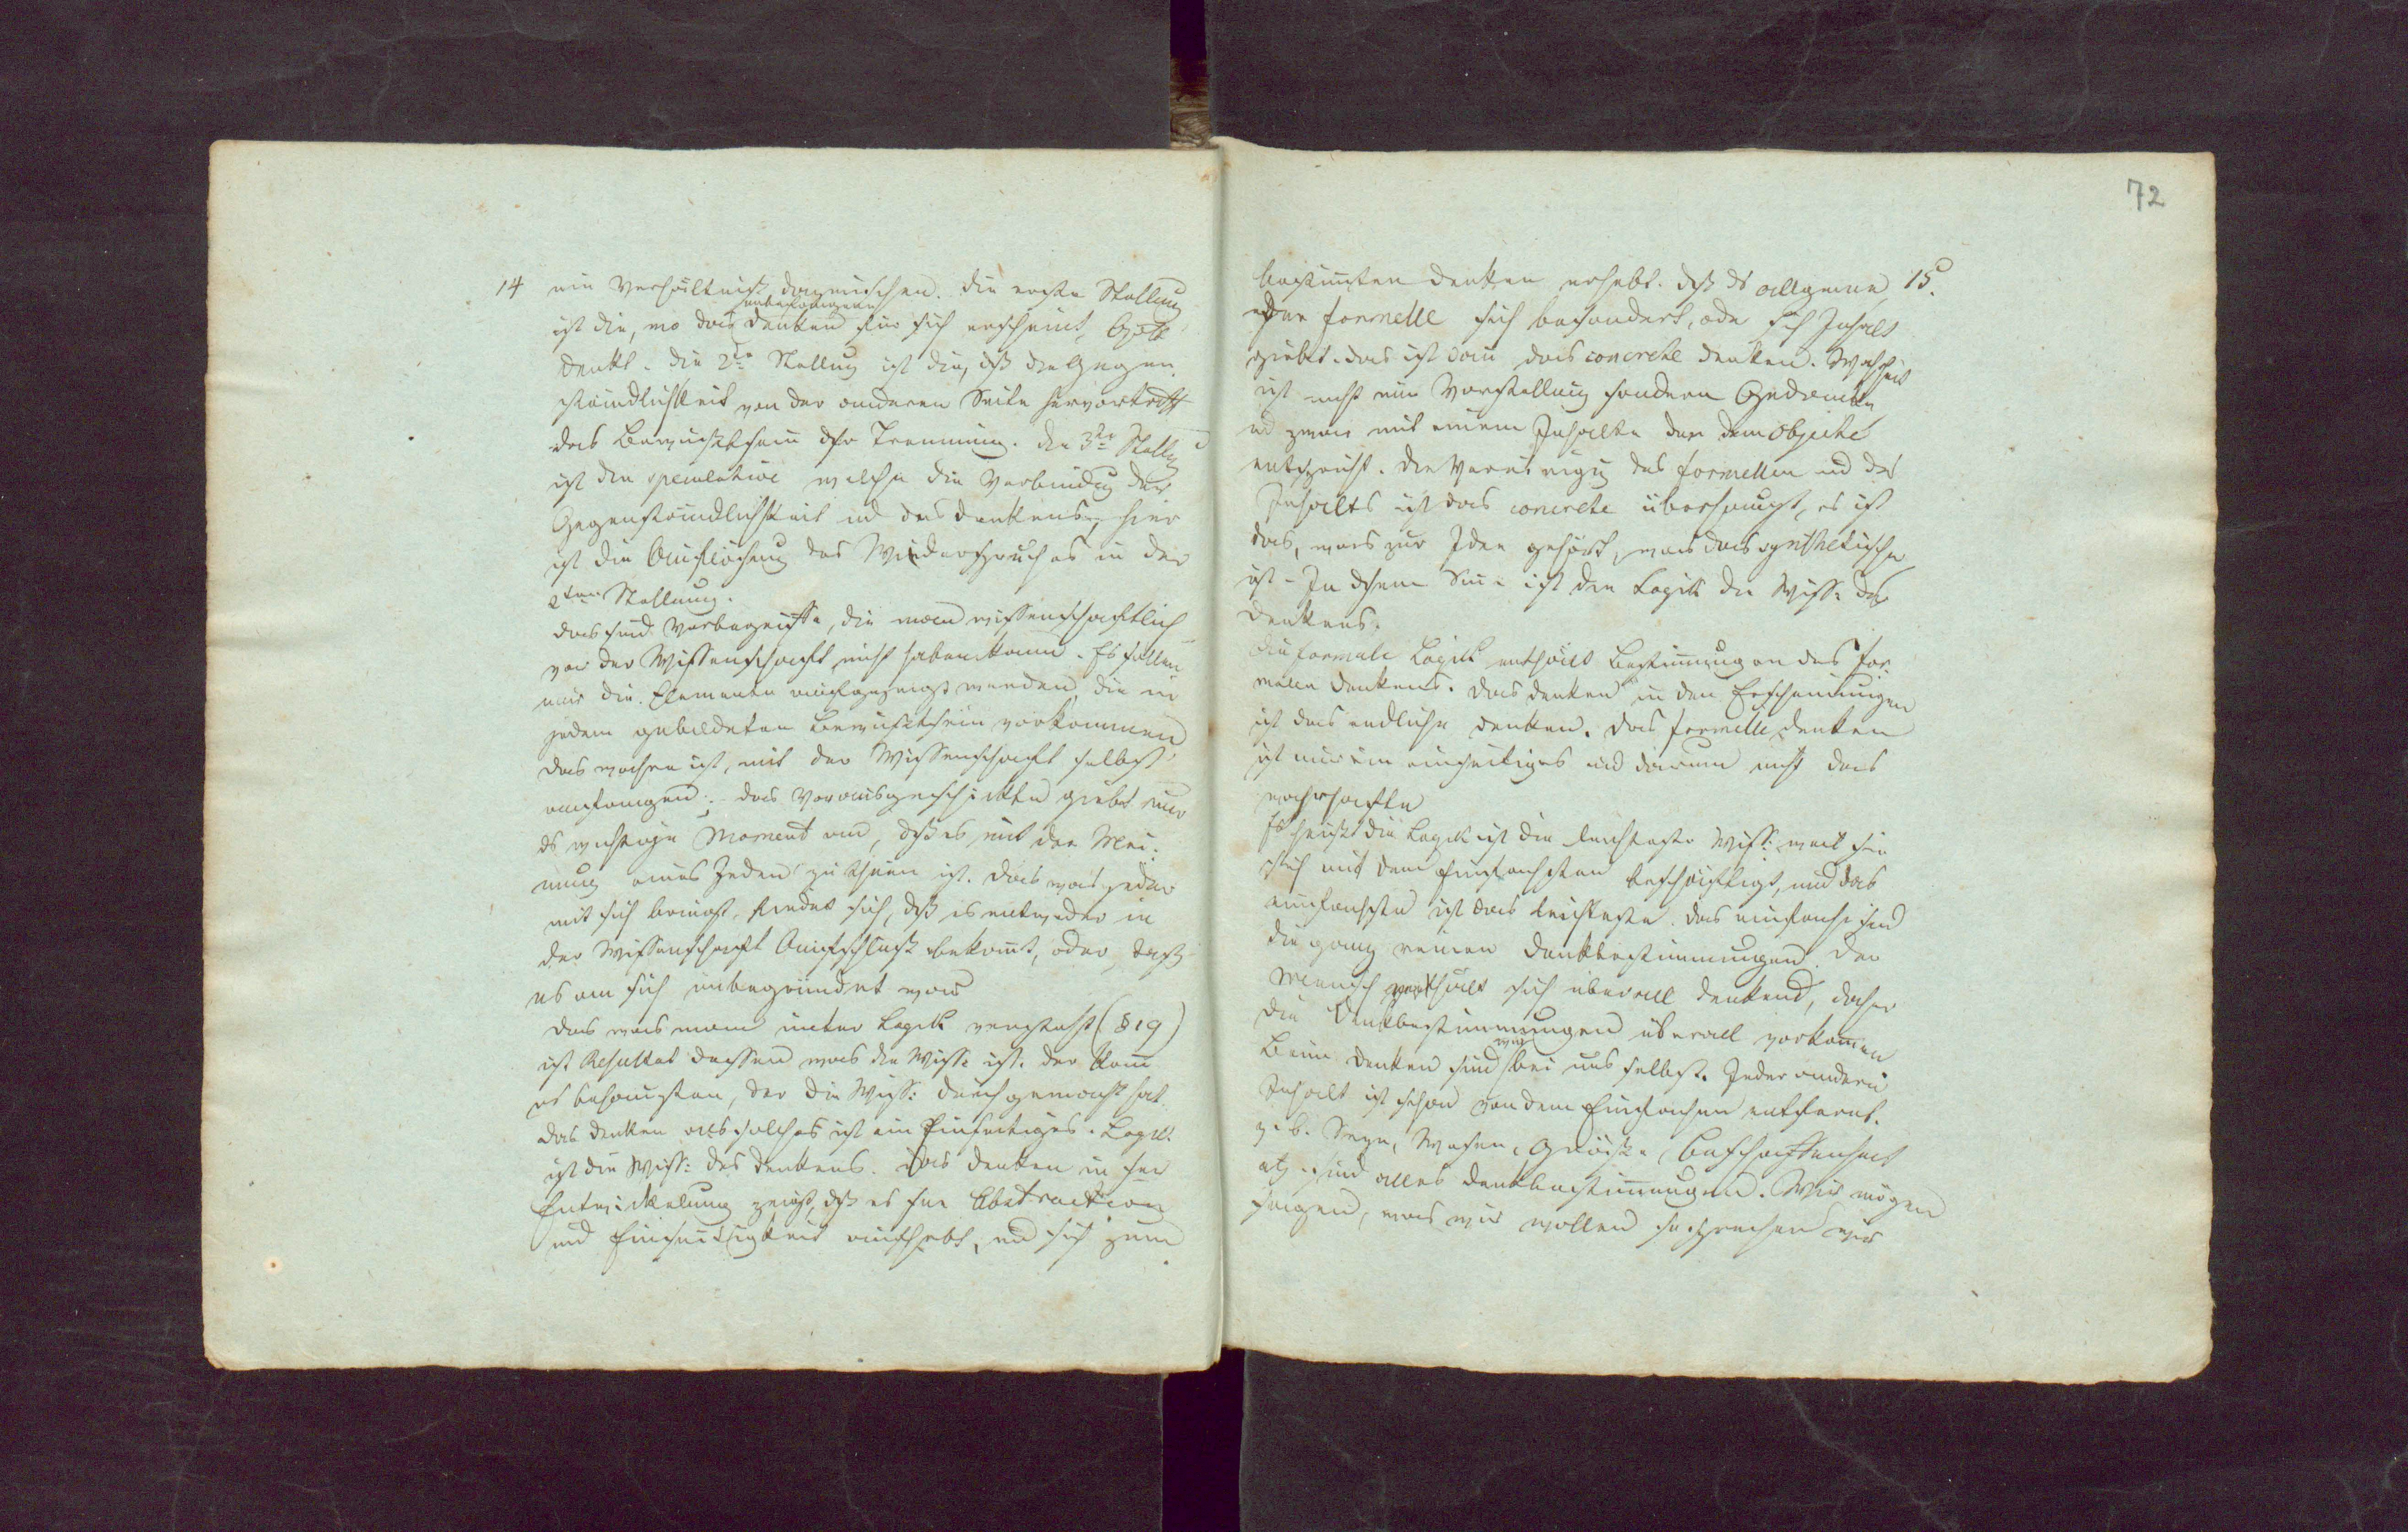 72
14 ein Verhältniß dazwischen. Die erste Stellung
unbefangenen
ist die, wo das Denken für sich erscheint, Objekte
denkt. Die 2te Stellung ist die, dß die Gegen-
ständlichkeit von der anderen Seite hervortritt
das Bewußtsein dser Trennung. Die 3te Stellg
ist die speculative welche die Verbindug der
Gegenständlichkeit ud des Denkens, hier
ist die Auflösung des Widerspruches in der
2ten Stellung.
das sind Vorbegriffe, die man wissenschaftlich
vor der Wissenschaft nicht haben kann. Es sollen
nur die Elemente aufgezeigt werden, die in
jedem gebildeten Bewußtsein vorkommen
das wahre ist, mit der Wissenschaft selbst
anfangen; das Vorausgeschickte giebt nur
ds wichtige Moment an, dß es mit der Mei-
nung eines Jeden zu thun ist. Das was jeder
mit sich bringt, findet sich, dß es entweder in
der Wissenschaft Aufschluß bekomt, oder, daß
es an sich unbegründet war
Das was man unter Logik versteht (§ 19)
ist Resultat dessen was die Wiss: ist. Der kann
es behaupten, der die Wiss: durchgemacht hat.
das Denken als solches ist ein Einseitiges. Logik
ist die Wiss: des Denkens. Das Denken in sr
Entwickelung zeigt, dß es sne Abstraction
und Einseitigkeit aufhebt, ud sich zum
bestimten Denken erhebt. dß ds allgemeine 15.
oder formelle sich besondert, oder sich Inhalt
giebt. das ist dann das concrete Denken. Wahrheit
ist nicht nur Vorstellung sondern Gedanken
ud zwar mit einem Inhalte der dem Objecte
entspricht. Die Vereinigug des formellen ud des
Inhalts ist das concrete überhaupt, es ist
das, was zur Idee gehört, was das synthetische
ist - In dsem Sinne ist die Logik die Wiss: des
Denkens.
Die formale Logik enthält Bestimmungen des for-
malen Denkens. Das Denken in den Erscheinungen
ist das endliche Denken. Das formelle Denken
ist nur ein einseitiges und darum nicht das
wahrhafte
Es heißt die Logik ist die leichteste Wiss: weil sie
sich mit dem Einfachsten beschäftigt, und das
einfachste ist das leichteste. Das einfache sind
die ganz reinen Denkbestimmungen. Der
Mensch verhält sich überall denkend, daher
die Denkbestimmungen überall vorkomen
wir
Beim Denken sind bei uns selbst. Jeder andere
Inhalt ist schon von dem Einfachen entfernt.
z. B. Seyn, Wesen, Größe, Beschaffenheit
etz. sind alles Denkbestimmungen. Wir mögen
sagen, was wir wollen so sprechen wir